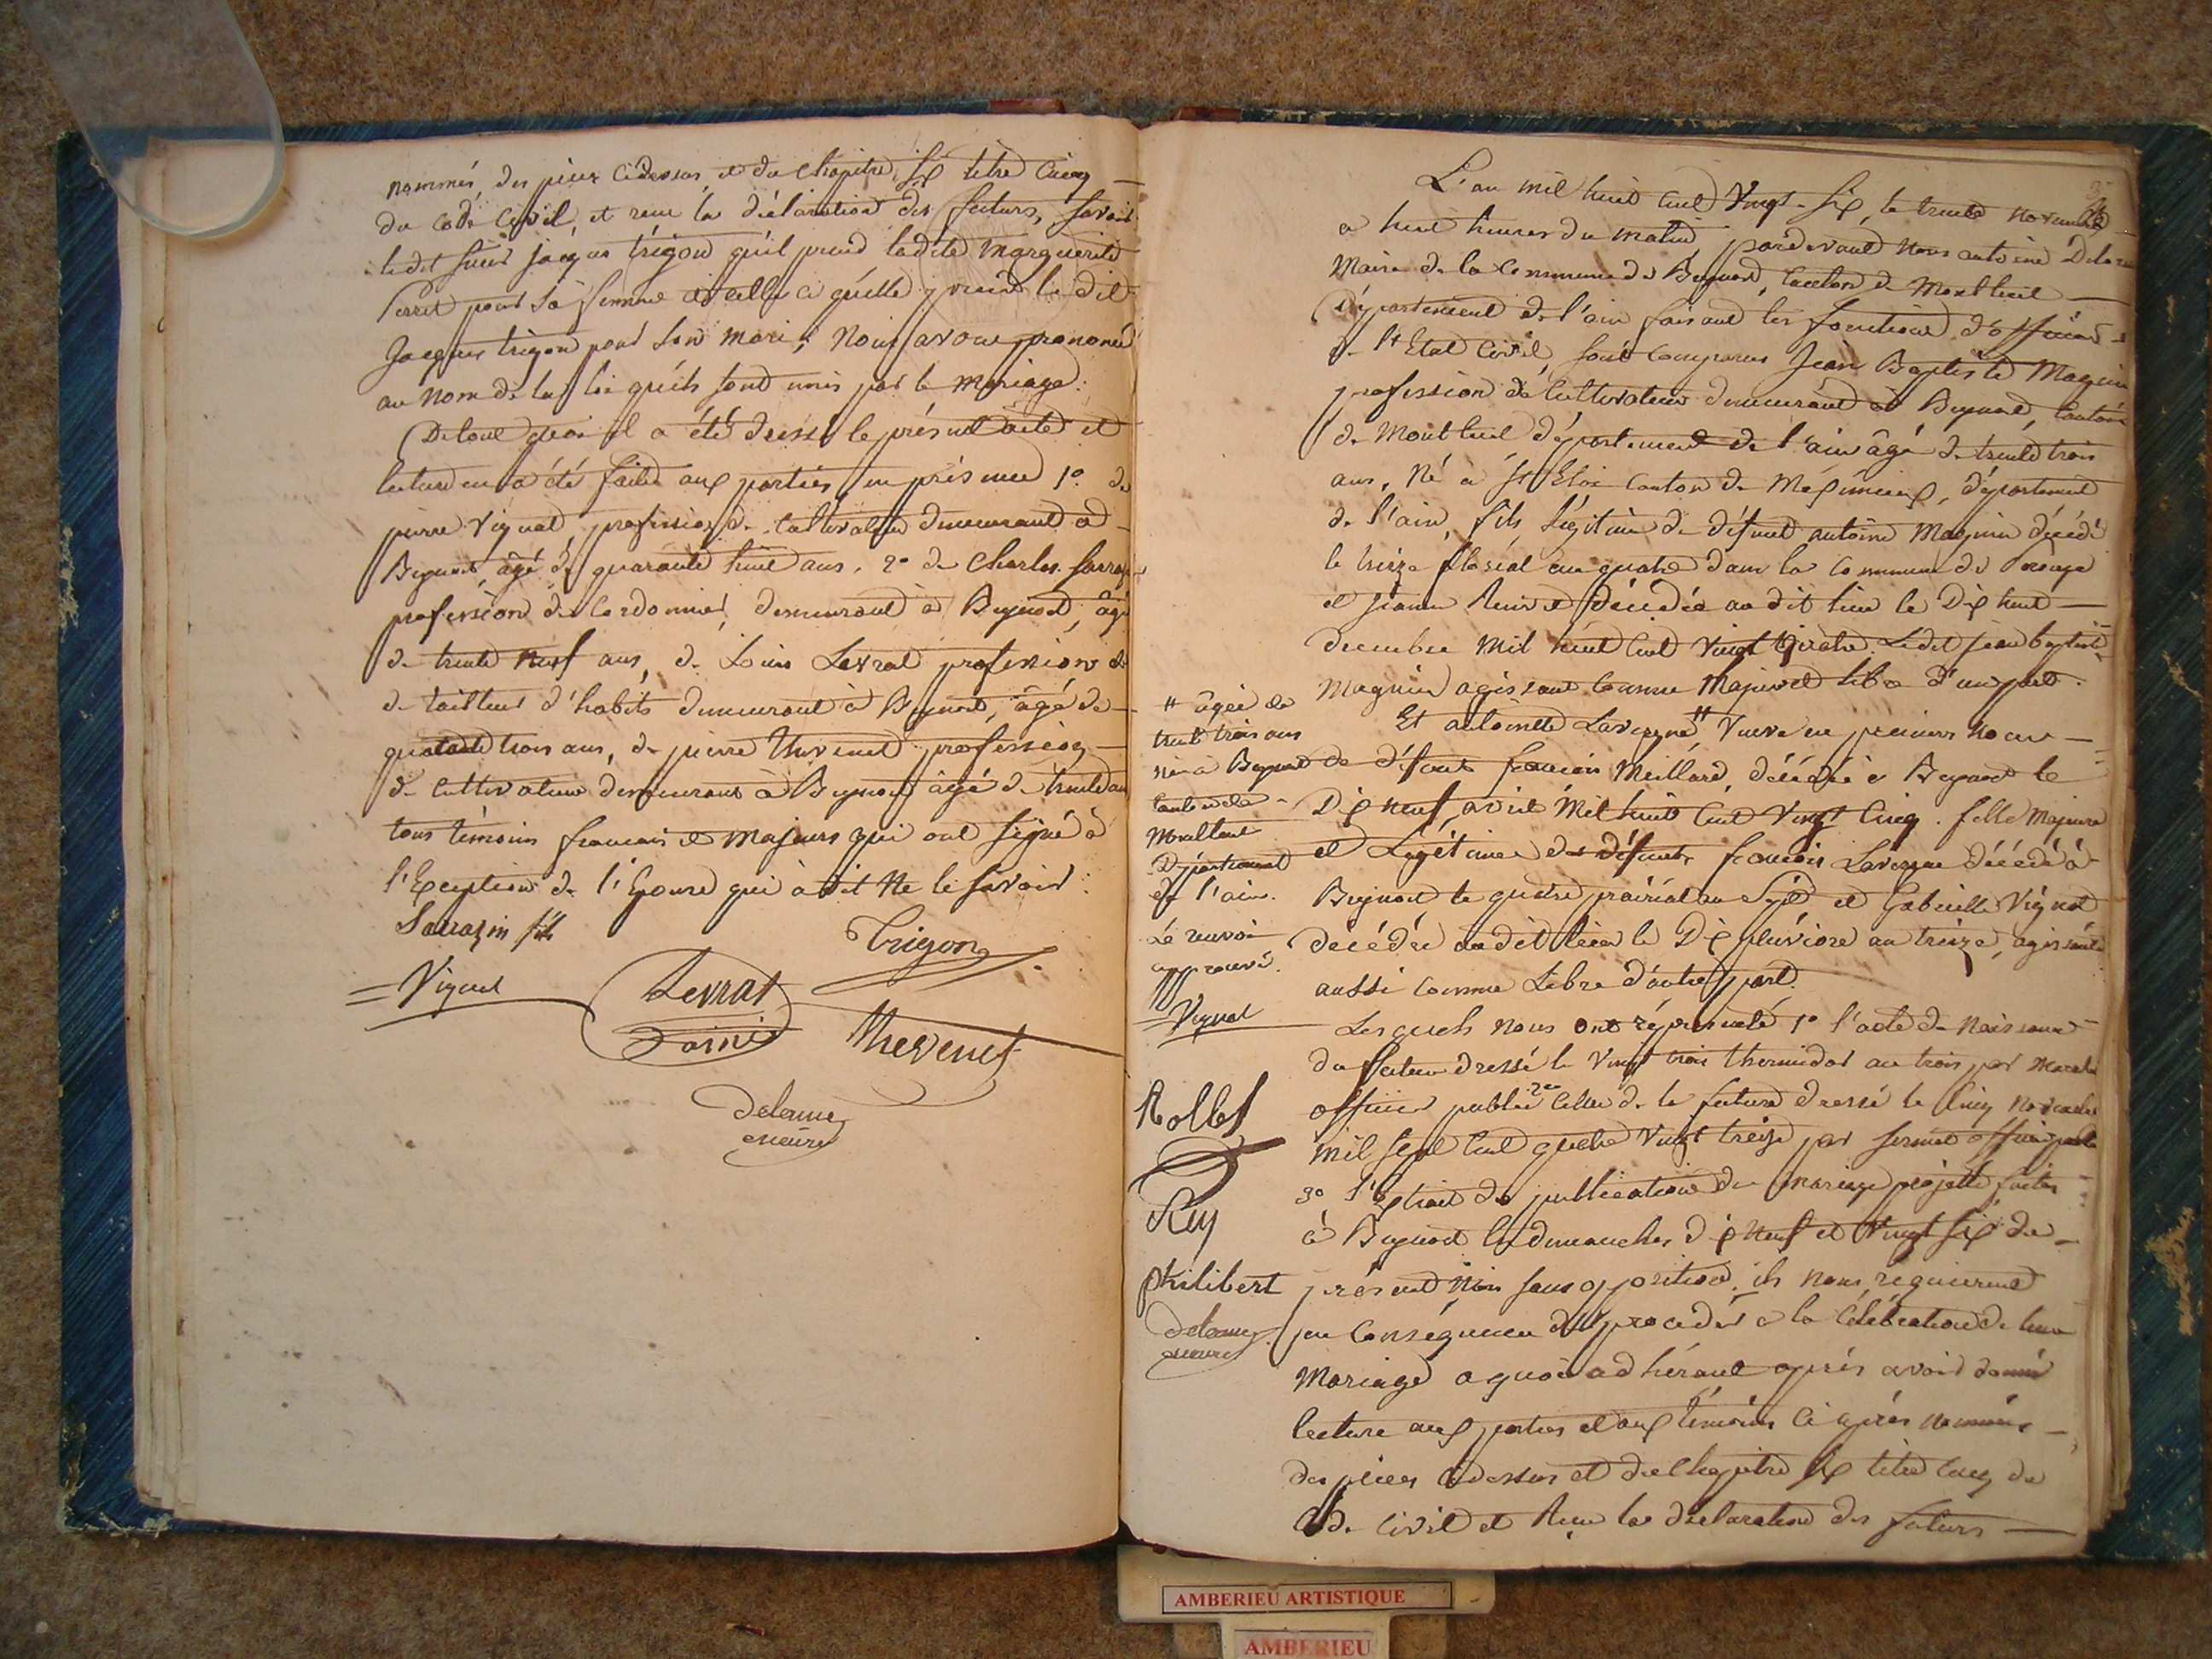 nommés, des pièces cidessus, et du chapitre six titre cinq
du code civil, et reçu la déclaration des futurs, savoir
ledit sieur jacques trigon qu'il prend ladite marguerite
Perret pour sa femme et celle ci qu'elle prend le dit
Jacques trigon pour son mari; Nous avons prononcé
au Nom de la loi qu'ils sont unis par le mariage.
De tout quoi il a été dressé le présent acte et
lecture en a été faite aux parties, en présence 1º. de
pierre Vignat, profession de cultivateur demeurant à
Beynost, âgé de quarante huit ans, 2º de Charles
profession de Cordonnier, demeurant à Beynost, âgé
de trente neuf ans, de Louis Levrat profession de
de tailleur d'habits demeurant à Beynost, âgé de
quarante trois ans, de pierre thevenet profession
de cultivateur demeurant à Beynost âgé de trente ans
tous témoins français et majeurs qui ont signé à
l'Exception de l'Epouse qui a dit Ne le savoir.
Sarrazin fils
Trigon
Vignat
Levrat
Thevenet
delorme
maire
L'an mil huit cent Vingt-six, le trente novembre
a huit heures du matin, pardevant Nous antoine
Maire de la Commune de Beynost, Canton de Montluel
Département de l'ain faisant les fonctions d'officier
de l'Etat Civil, sont comparus Jean Baptiste Magnin
profession de Cultivateur demeurant à Beynost, Canton
de Montluel département de l'ain âgé de trente trois
ans, Né à St Eloi Canton de Meximieux, département
de l'ain, fils légitime de défunt antoine Magnin décédé
le treize floréal an quatre dans la Commune de
et jeanne décédée au dit lieu le Dix huit
décembre Mil huit Cent Vingt quatre. Ledit jean baptiste
Magnin agissant comme Majeur et libre d'une part.
Et antoinette Lavergne # Veuve en premiers noces
de défunt françois Meillard, décédé à Beynost le
Dix neuf, avril Mil huit Cent Vingt Cinq. fille Majeure
et Légitime des défunts françois Lavergne décédé à
Beynost le quatre prairial an Sept et Gabrielle Vignat
décédée au dit lieu le Dix pluviose an treize, agissante
aussi comme Libre d'autre part.
# âgée de
trente trois ans
née à Beynost
Canton de
Montluel
Département
de l'ain.
Le renvoi
approuvé.
Vignat
Rollet
Rey
Philibert
delorme
maire
Lesquels nous ont représenté 1º l'acte de Naissance
du futur dressé le Vingt trois thermidor an trois par
officier public 2º celle de la future dressé le Cinq Novembre
mil sept Cent quatre Vingt treize par officier public
3º l'Extrait de publications du mariage projetté faites
à Beynost les dimanches dix Neuf et Vingt six du
présent Mois sans opposition. ils nous requierent
en Conséquence de procéder à la Célébration de leur
Mariage a quoi adhérant après avoir donné
lecture aux parties et aux témoins Ci après nommés
des pièces Cidessus et du Chapitre six titre cinq du
Code Civil et Reçu la déclaration des futurs
AMBERIEU ARTISTIQUE
AMBERIEU